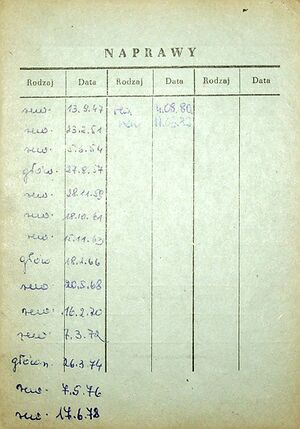 NAPRAWY
Rodzaj Data Rodzaj Data Rodzaj Data
rew. 13.9.47 rew. 4.08.80
rew. 23.2.51 rew.
rew. 5.6.54
główn. 27.8.57
rew. 28.11.59
rew. 18.10.61
rew. 15.11.63
główn 18.2.66
rew 20.5.68
rew. 16.2.70
rew. 7.3.72
główn. 26.3.74
rew. 7.5.76
rew. 17.6.78